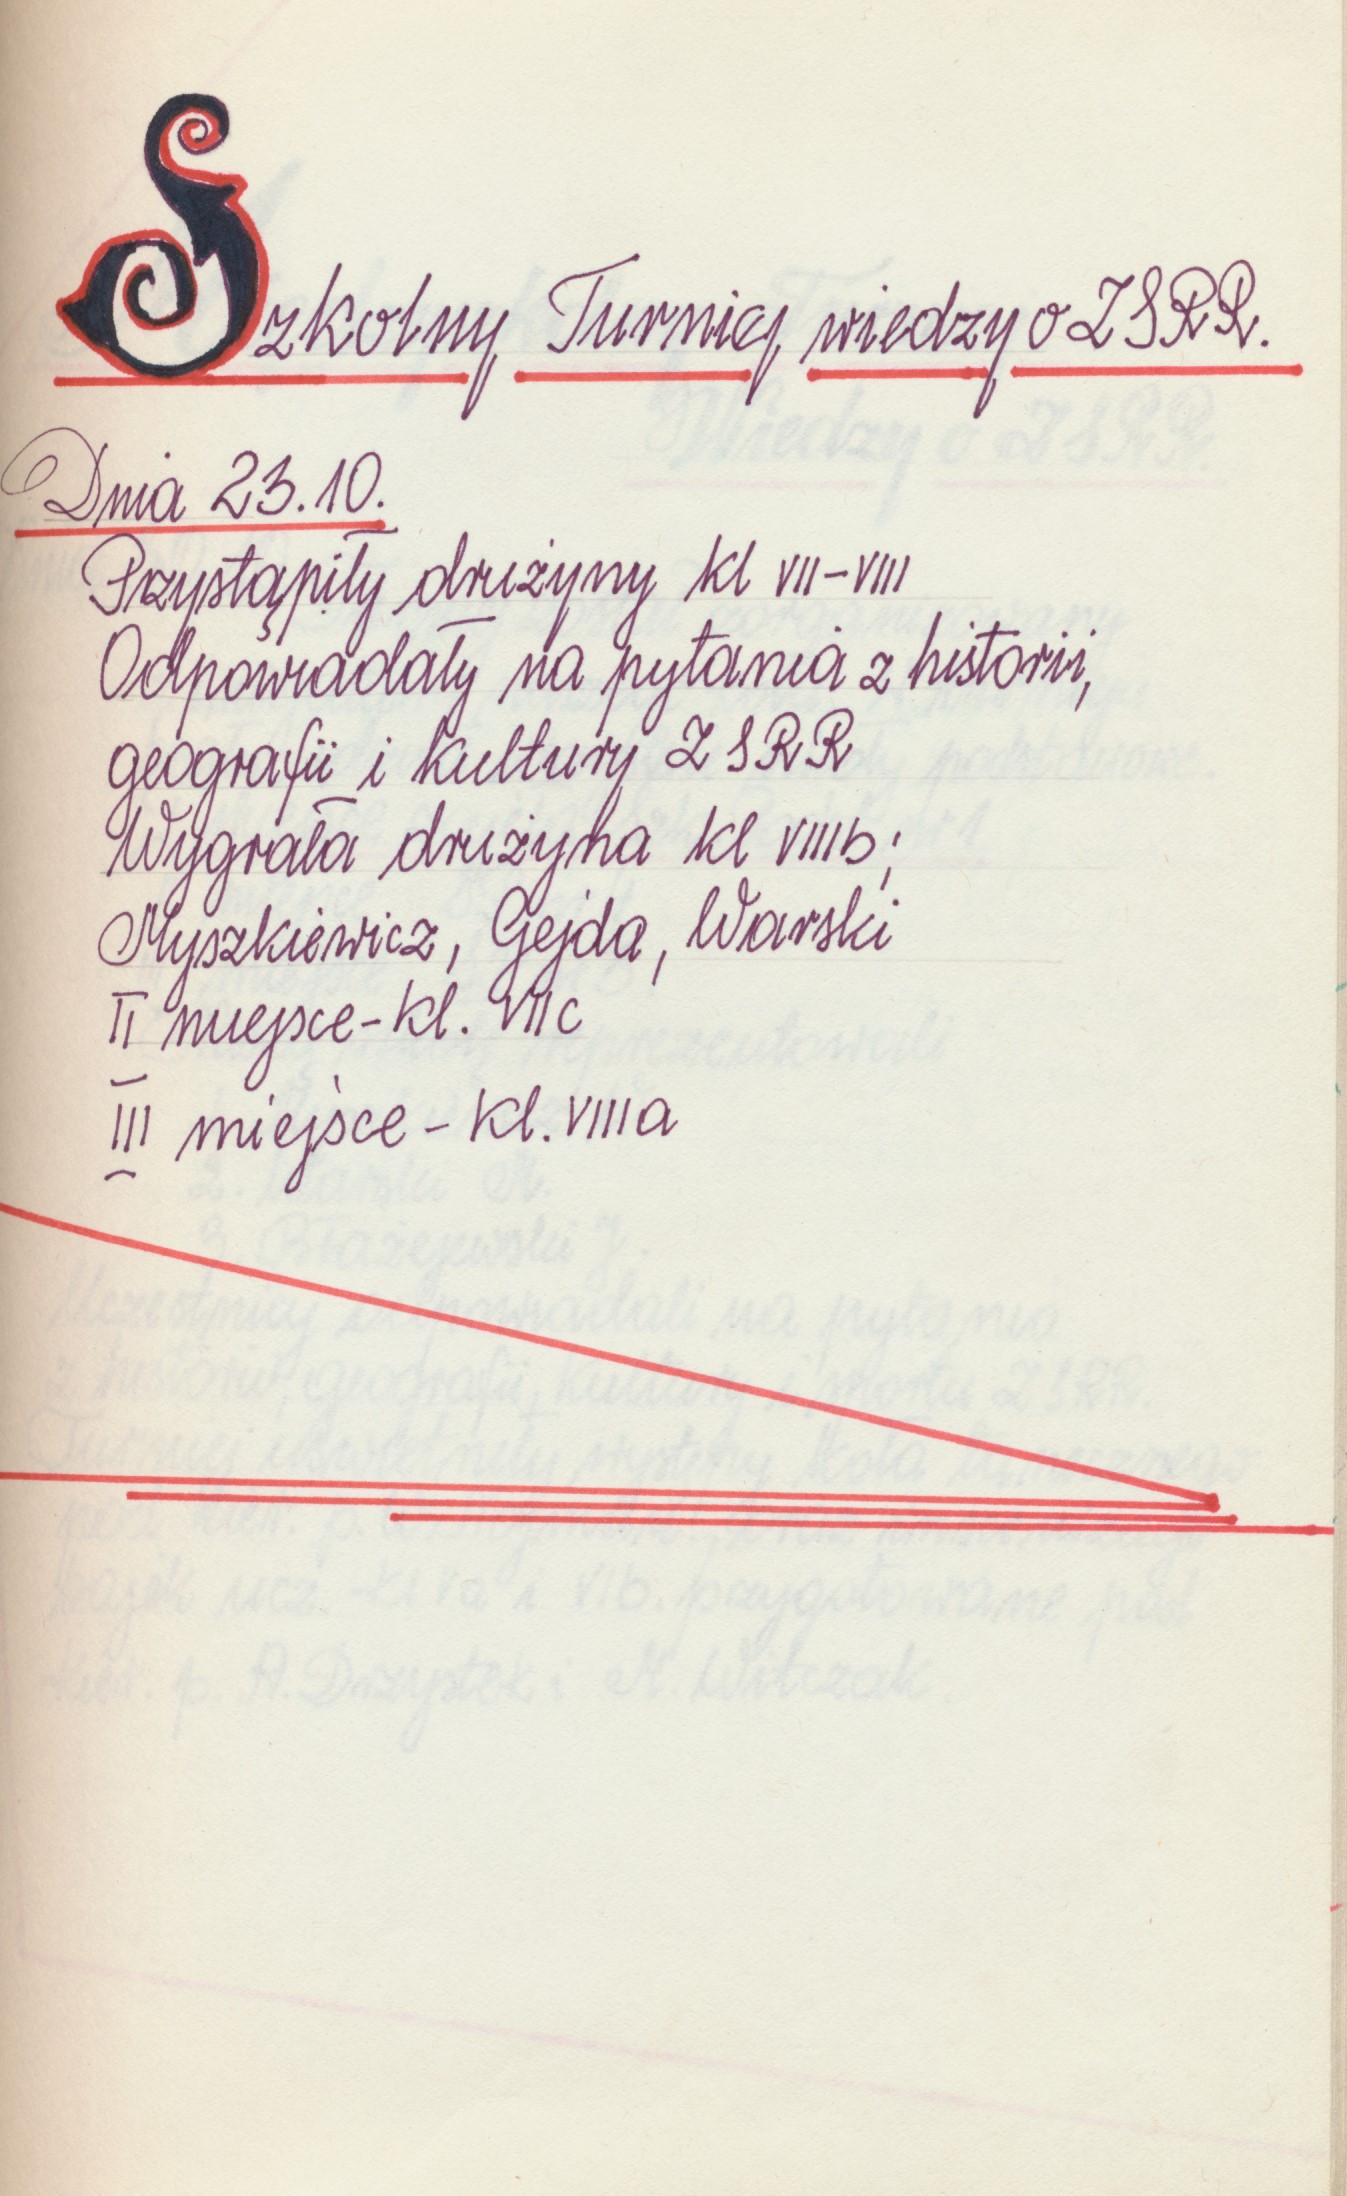 Szkolny Turniej wiedzy o ZSRR.
Dnia 23.10.
Przystąpiły drużyny kl VII-VIII
Odpowiadały na pytania z historii,
geografii i kultury ZSRR
Wygrała drużyna kl VIIIb;
Myszkiewicz, Gejda, Warski
II miejsce-kl. VIIc
III miejsce - kl. VIIIa